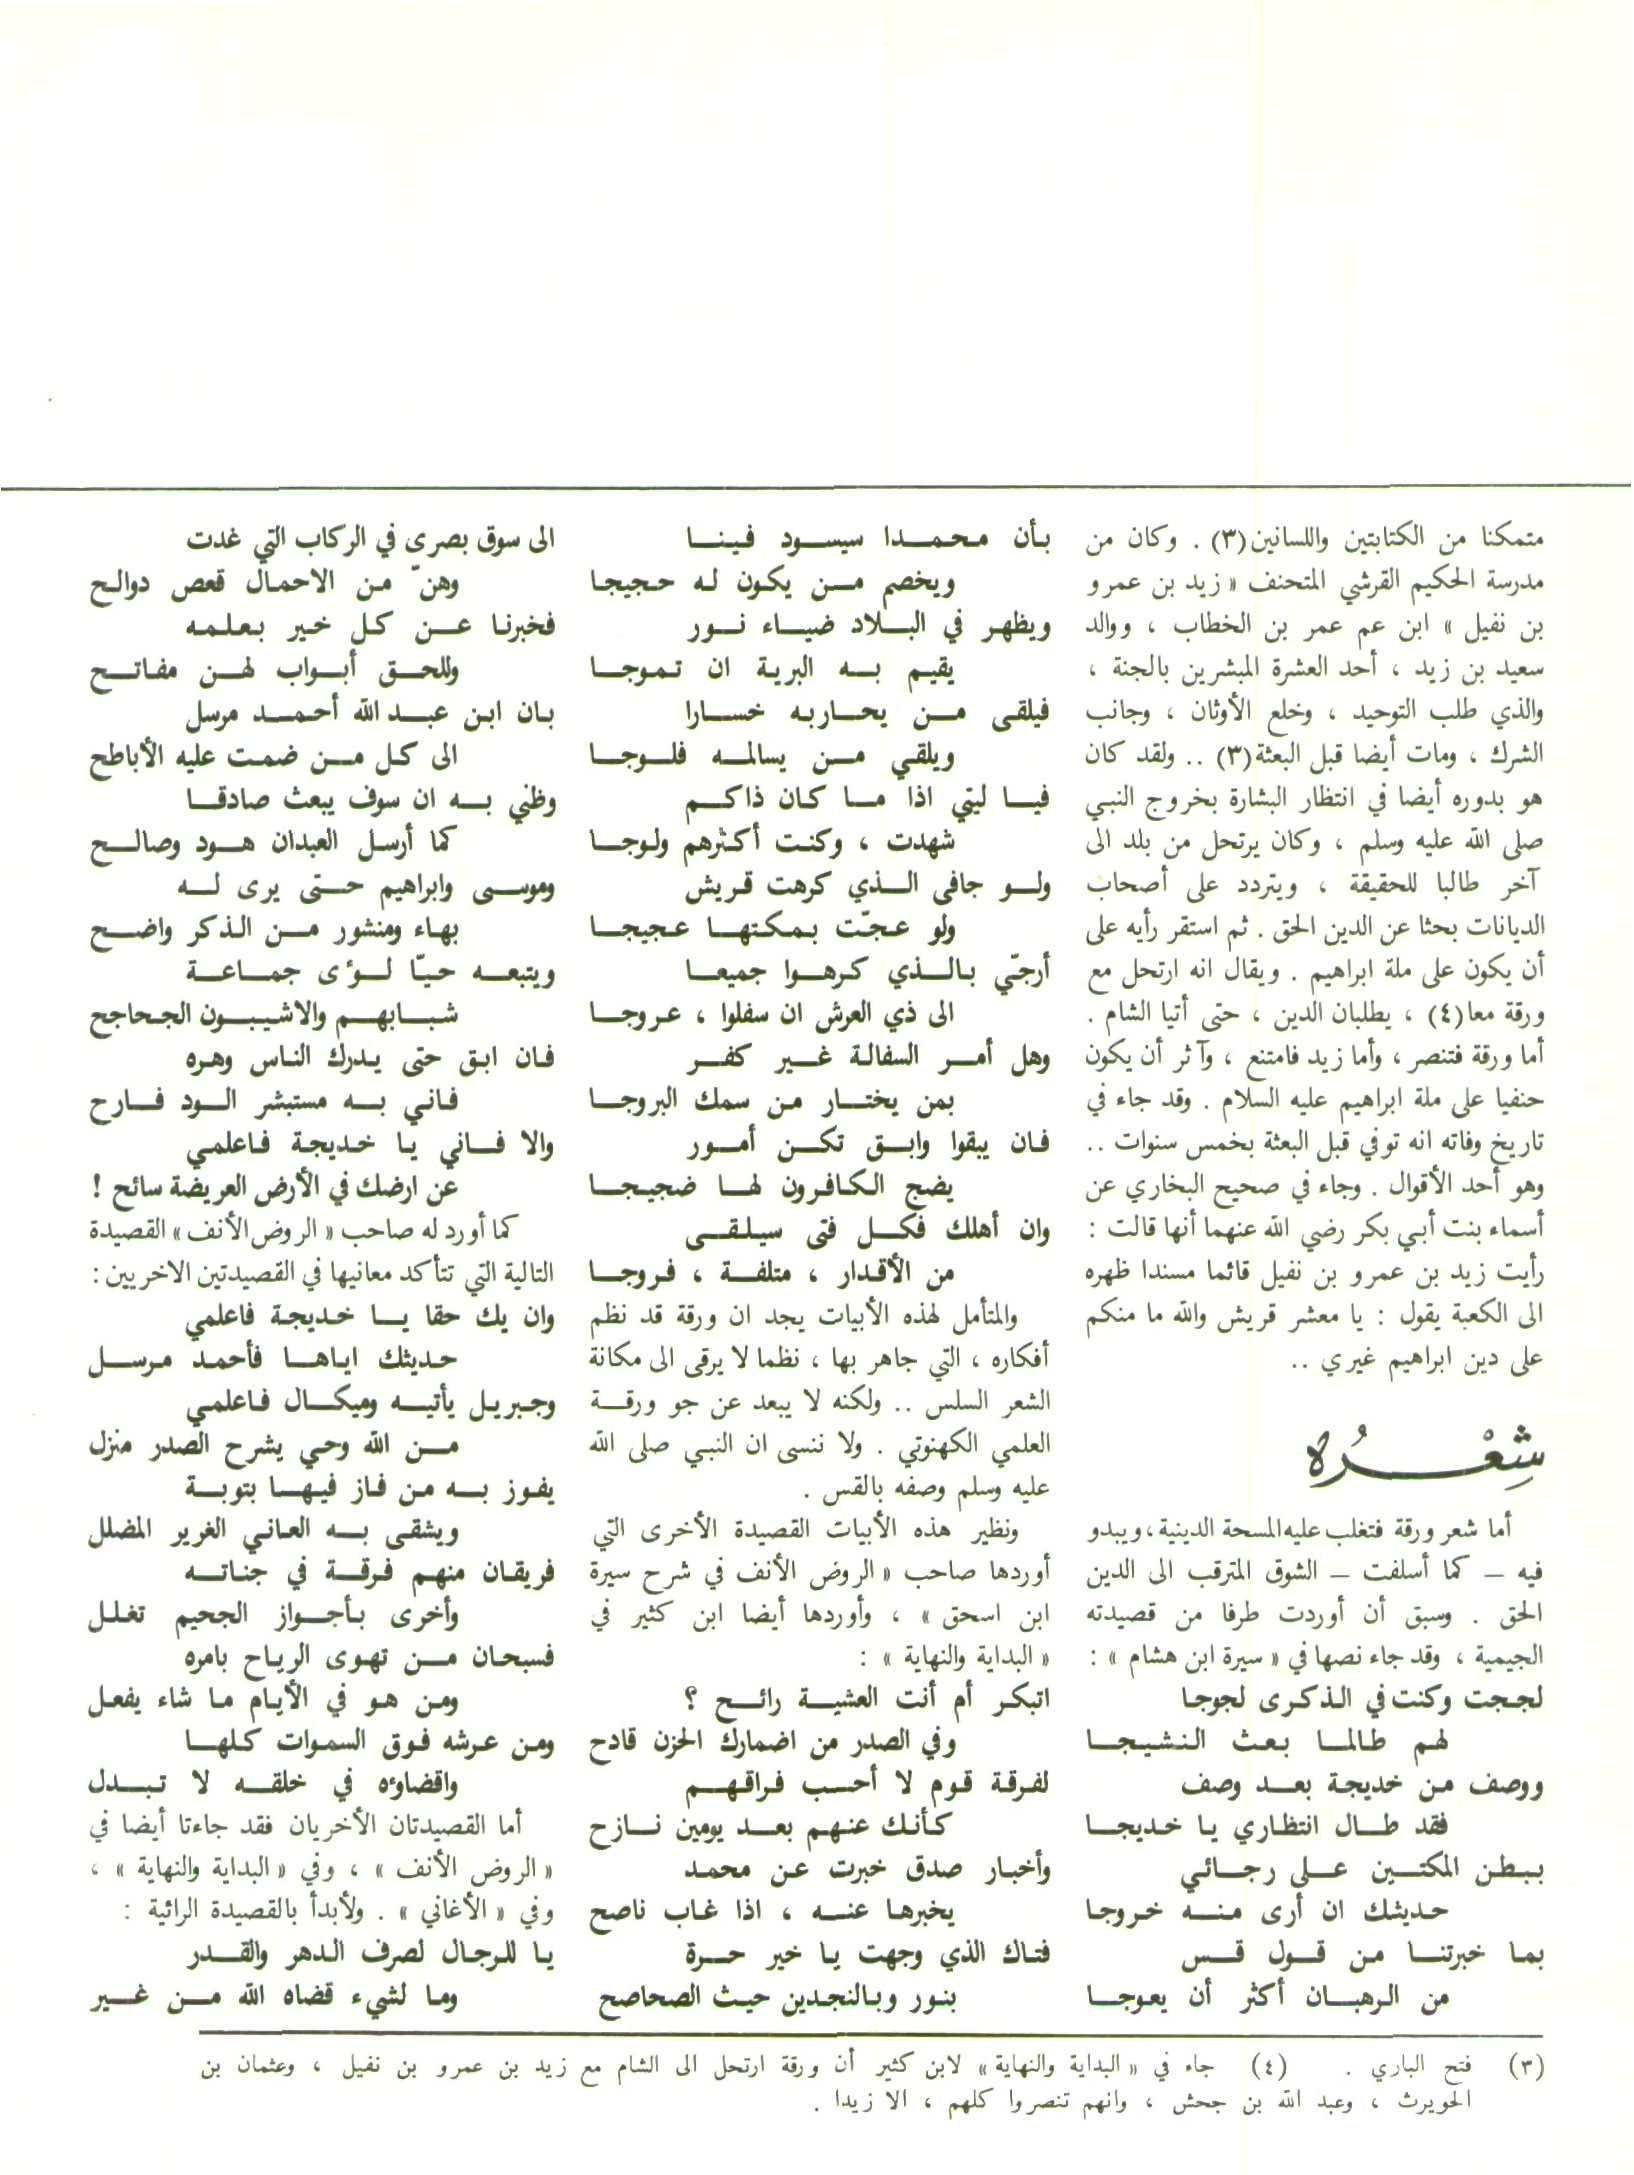 متمكنا من الكتابتين واللسانين(٣) . وكان من
مدرسة الحكيم القرشي المتحنف « زيد بن عمرو
بن نفيل » ابن عم عمر بن الخطاب ، ووالد
سعيد بن زيد ، أحد العشرة المبشرين بالجنة ،
والذي طلب التوحيد ، وخلع الأوثان ، وجانب
الشرك ، ومات أيضا قبل البعثة(٣) .. ولقد كان
هو بدوره أيضا في انتظار البشارة بخروج النبي
صلى الله عليه وسلم ، وكان يرتحل من بلد الى
آخر طالبا للحقيقة ، ويتردد على أصحاب
الديانات بحثا عن الدين الحق . ثم استقر رأيه على
أن يكون على ملة ابراهيم . ويقال انه ارتحل مع
ورقة معا(٤) ، يطلبان الدين ، حتى أتيا الشام .
أما ورقة فتنصر ، وأما زيد فامتنع ، وآثر أن يكون
حنفيا على ملة ابراهيم عليه السلام . وقد جاء في
تاريخ وفاته انه توفي قبل البعثة بخمس سنوات ..
وهو أحد الأقوال . وجاء في صحيح البخاري عن
أسماء بنت أبي بكر رضي الله عنهما أنها قالت :
رأيت زيد بن عمرو بن نفيل قائما مسندا ظهره
الى الكعبة يقول : يا معشر قريش والله ما منكم
على دين ابراهيم غيري ..
شِعْرُه
أما شعر ورقة فتغلب عليه المسحة الدينية ، ويبدو
فيه – كما أسلفت – الشوق المترقب الى الدين
الحق . وسبق أن أوردت طرفا من قصيدته
الجيمية ، وقد جاء نصها في « سيرة ابن هشام » :
لججت وكنت في الذكرى لجوجا
لهم طالما بعث النشيجا
ووصف من خديجة بعد وصف
فقد طال انتظاري يا خديجا
ببطن المكتين على رجائي
حديثك ان أرى منه خروجا
بما خبرتنا من قول قس
من الرهبان أكثر أن يعوجا
بأن محمدا سيسود فينا
ويخصم من يكون له حجيجا
ويظهر في البلاد ضياء نور
يقيم به البرية ان تموجا
فيلقى من يحاربه خسارا
ويلقي من يسالمه فلوجا
فيا ليتي اذا ما كان ذاكم
شهدت ، وكنت أكثرهم ولوجا
ولو جافى الذي كرهت قريش
ولو عجّت بمكتها عجيجا
أرجّي بالذي كرهوا جميعا
الى ذي العرش ان سفلوا ، عروجا
وهل أمر السفالة غير كفر
بمن يختار من سمك البروجا
فان يبقوا وابق تكن أمور
يضج الكافرون لها ضجيجا
وان أهلك فكل فتى سيلقى
من الأقدار ، متلفة ، فروجا
والمتأمل لهذه الأبيات يجد ان ورقة قد نظم
أفكاره ، التي جاهر بها ، نظما لا يرقى الى مكانة
الشعر السلس .. ولكنه لا يبعد عن جو ورقة
العلمي الكهنوتي . ولا ننسى ان النبي صلى الله
عليه وسلم وصفه بالقس .
ونظير هذه الأبيات القصيدة الأخرى التي
أوردها صاحب « الروض الأنف في شرح سيرة
ابن اسحق » ، وأوردها أيضا ابن كثير في
« البداية والنهاية » :
اتبكر أم أنت العشية رائح ؟
وفي الصدر من اضمارك الحزن قادح
لفرقة قوم لا أحسب فراقهم
كأنك عنهم بعد يومين نازح
وأخبار صدق خبرت عن محمد
يخبرها عنه ، اذا غاب ناصح
فتاك الذي وجهت يا خير حرة
بنور وبالنجدين حيث الصحاصح
الى سوق بصرى في الركاب التي غدت
وهنّ من الاحمال قعص دوالح
فخبرنا عن كل خير بعلمه
وللحق أبواب لهن مفاتح
بان ابن عبد الله أحمد مرسل
الى كل من ضمت عليه الأباطح
وظني به ان سوف يبعث صادقا
كما أرسل العبدان هود وصالح
وموسى وابراهيم حتى يرى له
بهاء ومنشور من الذكر واضح
ويتبعه حيّا لؤى جماعة
شبابهم والاشيبون الجحاجح
فان ابق حتى يدرك الناس وهره
فاني به مستبشر الود فارح
والا فاني يا خديجة فاعلمي
عن ارضك في الأرض العريضة سائح !
كما أورد له صاحب « الروض الأنف » القصيدة
التالية التي تتأكد معانيها في القصيدتين الاخريين :
وان يك حقا يا خديجة فاعلمي
حديثك اياها فأحمد مرسل
وجبريل يأتيه وميكال فاعلمي
من الله وحي يشرح الصدر منزل
يفوز به من فاز فيها بتوبة
ويشقى به العاني الغرير المضلل
فريقان منهم فرقة في جناته
وأخرى بأجواز الجحيم تغلل
فسبحان من تهوى الرياح بامره
ومن هو في الأيام ما شاء يفعل
ومن عرشه فوق السموات كلها
واقضاؤه في خلقه لا تبدل
أما القصيدتان الأخريان فقد جاءتا أيضا في
« الروض الأنف » ، وفي « البداية والنهاية » ،
وفي « الأغاني » . ولأبدأ بالقصيدة الرائية :
يا للرجال لصرف الدهر والقدر
وما لشيء قضاه الله من غير
(٣) فتح الباري . (٤) جاء في « البداية والنهاية » لابن كثير أن ورقة ارتحل الى الشام مع زيد بن عمرو بن نفيل ، وعثمان بن
الحويرث ، وعبد الله بن جحش ، وانهم تنصروا كلهم ، الا زيدا .